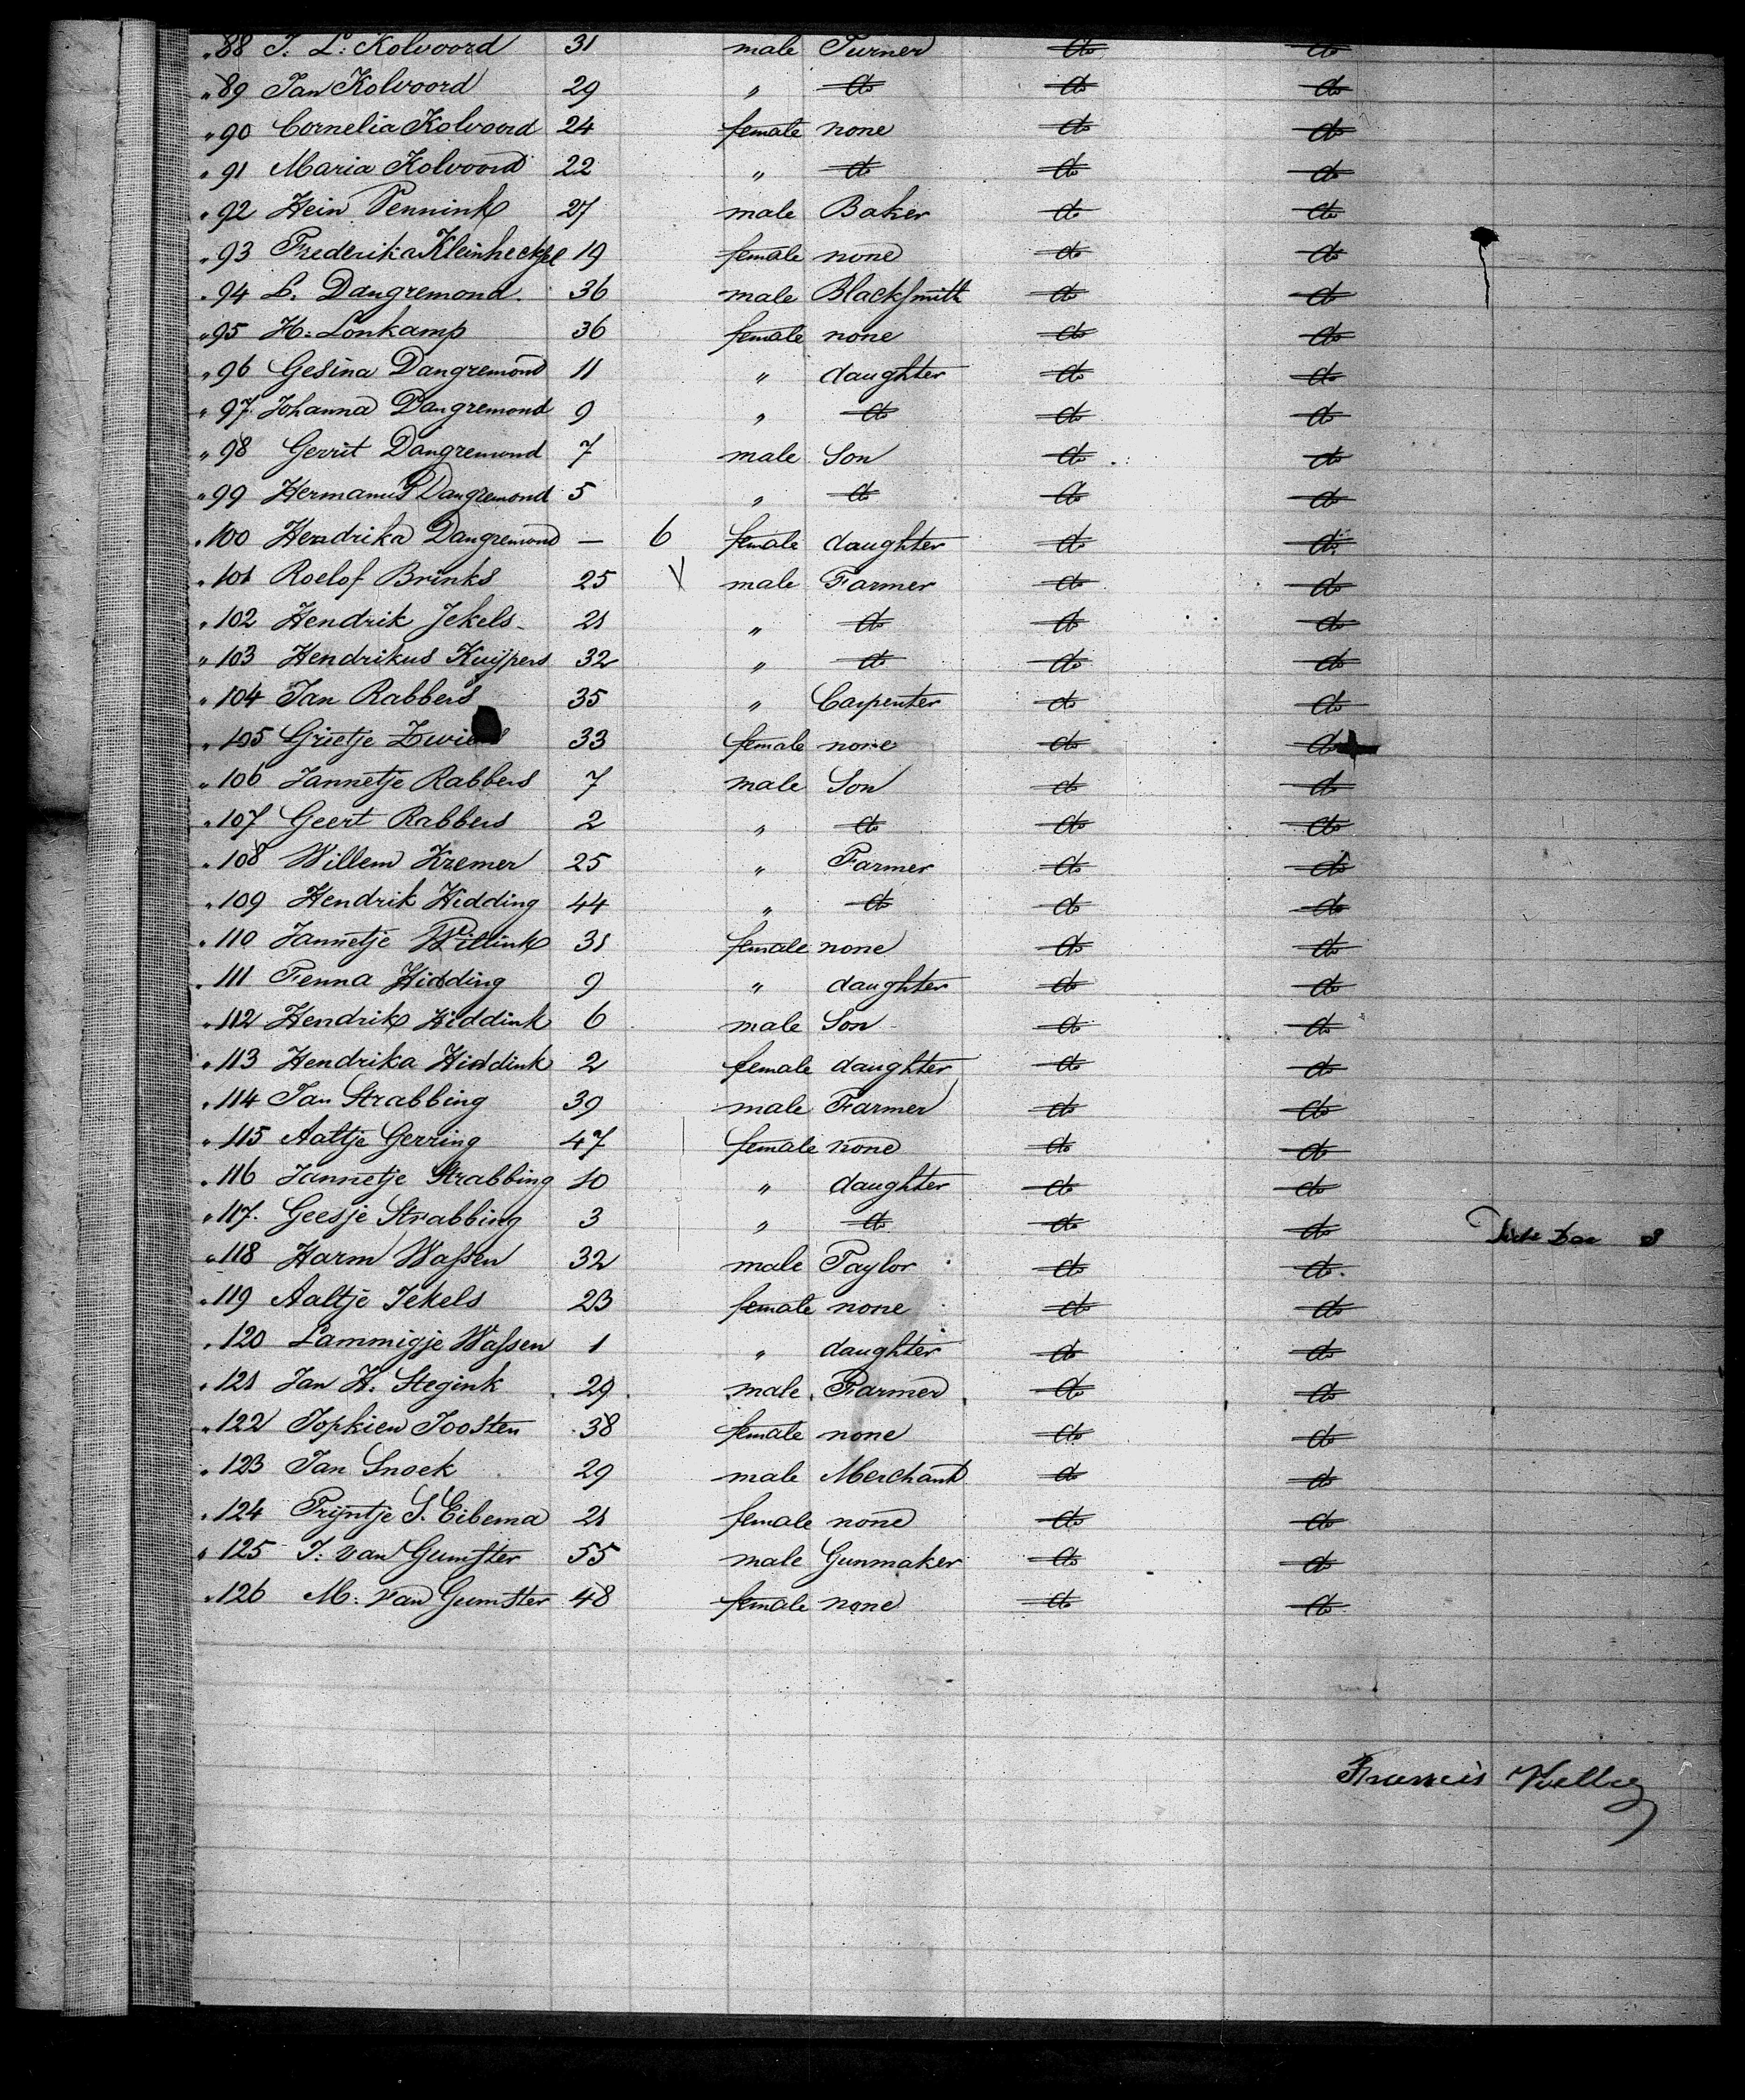 " 88 J. L. Kolvoord 31 male Turner do do
" 89 Jan Kolvoord 29 " do do do
" 90 Cornelia Kolvoord 24 female none do do
" 91 Maria Kolvoord 22 " do do do
" 92 Hein Pennink 27 male Baker do do
" 93 Frederika Kleinheeksel 19 female none do do
" 94 L. Dangremond 36 male Blacksmith do do
" 95 H. Lonkamp 36 female none do do
" 96 Gesina Dangremond 11 " daughter do do
" 97 Johanna Dangremond 9 " do do do
" 98 Gerrit Dangremond 7 male Son do do
" 99 Hermanus Dangremond 5 " do do do
" 100 Hendrika Dangremond — 6 female daughter do do
" 101 Roelof Brinks 25 male Farmer do do
" 102 Hendrik Jekels 21 " do do do
" 103 Hendrikus Kuijpers 32 " do do do
" 104 Jan Rabbers 35 " Carpenter do do
" 105 Grietje 33 female none do do
" 106 Jannetje Rabbers 7 male Son do do
" 107 Geert Rabbers 2 " do do do
" 108 Willem Kremer 25 " Farmer do do
" 109 Hendrik Hidding 44 " do do do
" 110 Jannetje 31 female none do do
" 111 Fenna Hidding 9 " daughter do do
" 112 Hendrik Hiddink 6 male Son do do
" 113 Hendrika Hiddink 2 female daughter do do
" 114 Jan Strabbing 39 male Farmer do do
" 115 Aaltje Gerring 47 female none do do
" 116 Jannetje Strabbing 10 " daughter do do
" 117. Geesje Strabbing 3 " do do do
" 118 Harm Wassen 32 male Taylor do do
" 119 Aaltje Jekels 23 female none do do
" 120 Lammigje Wassen 1 " daughter do do
" 121 Jan H. Stegink 29 male Farmer do do
" 122 Jopkien Joosten 38 female none do do
" 123 Jan Snoek 29 male Merchant do do
" 124 Trijntje S. Eibema 21 female none do do
" 125 J. van Gumster 55 male Gunmaker do do
" 126 M. van Gumster 48 female none do do
Francis